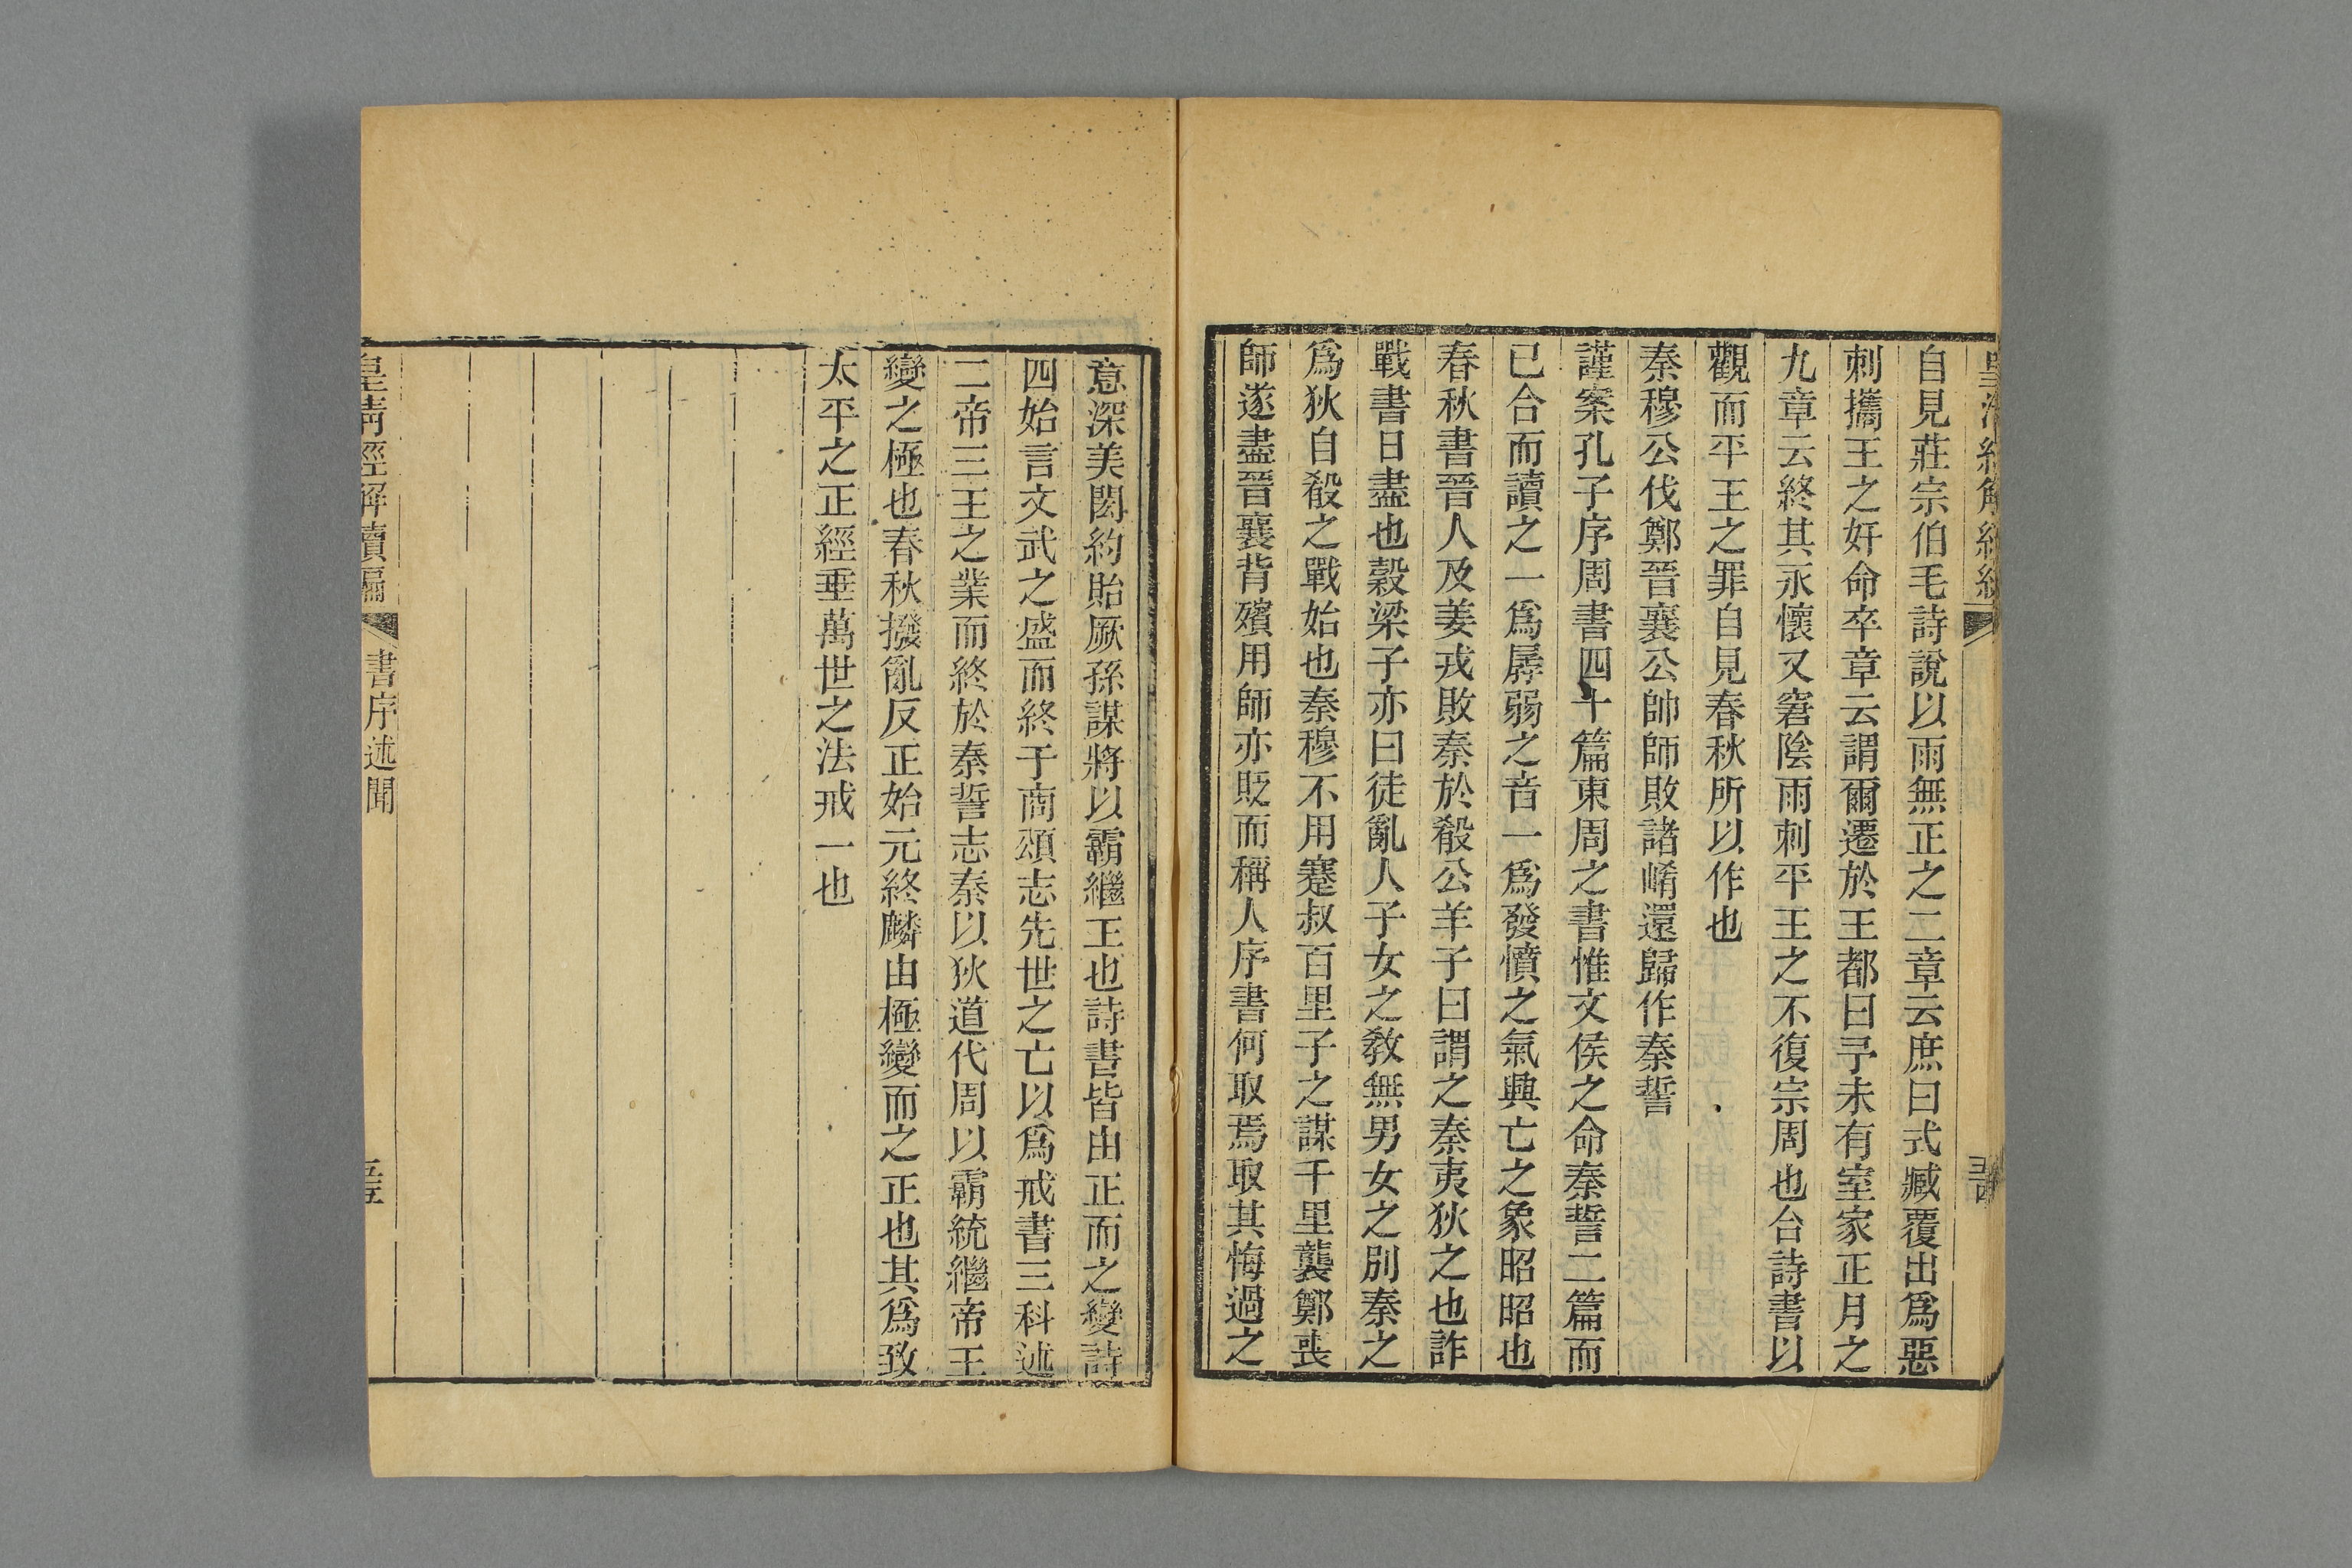 自見莊宗伯毛詩說以雨無正之二章云庶曰式臧覆出爲惡
刺攜王之奸命卒章云謂爾遷於王都曰予未有室家正月之
九章云終其永懷又窘陰雨刺平王之不復宗周也合詩書以
觀而平王之罪自見春秋所以作也
秦穆公伐鄭晉襄公帥師敗諸崤還歸作秦誓
謹案孔子序周書四十篇東周之書惟文侯之命秦誓二篇而
已合而讀之一爲孱弱之音一爲發憤之氣興亡之象昭昭也
春秋書晉人及姜戎敗秦於殽公羊子曰謂之秦夷狄之也詐
戰書日盡也穀梁子亦曰徒亂人子女之敎無男女之別秦之
爲狄自殽之戰始也秦穆不用蹇叔百里子之謀千里襲鄭喪
師遂盡晉襄背殯用師亦貶而稱人序書何取焉取其悔過之
意深美閎約貽厥孫謀將以霸繼王也詩書皆由正而之變詩
四始言文武之盛而終于商頌志先世之亡以爲戒書三科述
二帝三王之業而終於秦誓志秦以狄道代周以霸統繼帝王
變之極也春秋撥亂反正始元終麟由極變而之正也其爲致
太平之正經垂萬世之法戒一也
皇清經解續編
書序述聞